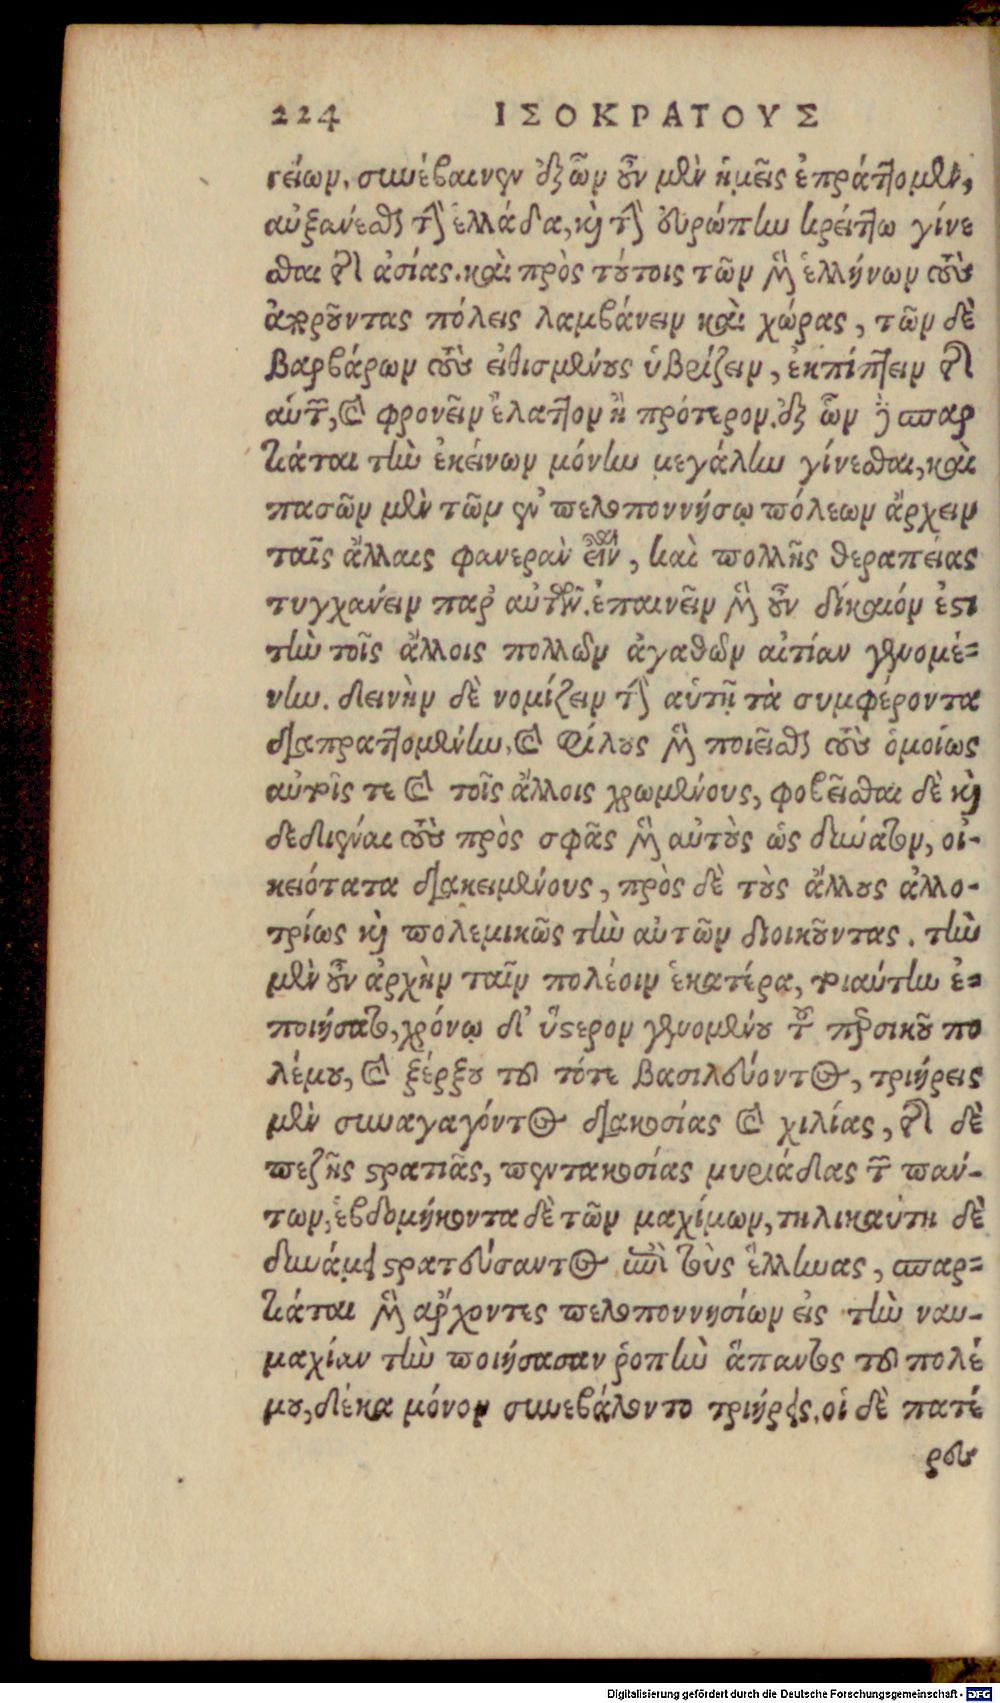 224 ΙΣΟΚΡΑΤΟΥΣ
γείων. συνέβαινεν ἐξ ὧν οὖν μὲν ἡμεῖς ἐπράττομεν,
αὐξάνεσθαι τὴν ἑλλάδα, καὶ τὴν εὐρώπην κρείττω γίνε
σθαι τῆς ἀσίας. καὶ πρὸς τούτοις τῶν μὲν ἑλλήνων τοὺς
ἀποροῦντας πόλεις λαμβάνειν καὶ χώρας, τῶν δὲ
βαρβάρων τοὺς εἰθισμένους ὑβρίζειν, ἐκπίπτειν τῆς
αὑτῶν, καὶ φρονεῖν ἔλαττον ἢ πρότερον. ἐξ ὧν δὲ σπαρ
τιάται τὴν ἐκείνων μόνην μεγάλην γίνεσθαι, καὶ
πασῶν μὲν τῶν ἐν πελοποννήσῳ πόλεων ἄρχειν
ταῖς ἄλλαις φανερὰν εἶναι, καὶ πολλῆς θεραπείας
τυγχάνειν παρ' αὐτῶν. ἐπαινεῖν μὲν οὖν δίκαιόν ἐστι
τὴν τοῖς ἄλλοις πολλῶν ἀγαθῶν αἰτίαν γενομέ-
νην. δεινὴν δὲ νομίζειν τὴν αὑτῇ τὰ συμφέροντα
διαπραττομένην, καὶ φίλους μὲν ποιεῖσθαι τοὺς ὁμοίως
αὑτοῖς τε καὶ τοῖς ἄλλοις χρωμένους, φοβεῖσθαι δὲ καὶ
δεδιέναι τοὺς πρὸς σφᾶς μὲν αὐτοὺς ὡς δυνατὸν, οἰ-
κειότατα διακειμένους, πρὸς δὲ τοὺς ἄλλους ἀλλο-
τρίως καὶ πολεμικῶς τὴν αὑτῶν διοικοῦντας. τὴν
μὲν οὖν ἀρχὴν ταῖν πολέοιν ἑκατέρα, τοιαύτην ἐ-
ποιήσατο, χρόνῳ δ' ὕστερον γενομένου τοῦ περσικοῦ πο
λέμου, καὶ ξέρξου τοῦ τότε βασιλεύοντος, τριήρεις
μὲν συναγαγόντος διακοσίας καὶ χιλίας, τῆς δὲ
πεζῆς στρατιᾶς, πεντακοσίας μυριάδας τῶν πάν-
των, ἑβδομήκοντα δὲ τῶν μαχίμων, τηλικαύτη δὲ
δυνάμει στρατεύσαντος ἐπὶ τοὺς ἕλληνας, σπαρ-
τιάται μὲν ἄρχοντες πελοποννησίων εἰς τὴν ναυ-
μαχίαν τὴν ποιήσασαν ῥοπὴν ἅπαντος τοῦ πολέ
μου, δέκα μόνον συνεβάλοντο τριήρεις. οἱ δὲ πατέ
ρες
Digitalisierung gefördert durch die Deutsche Forschungsgemeinschaft - DFG